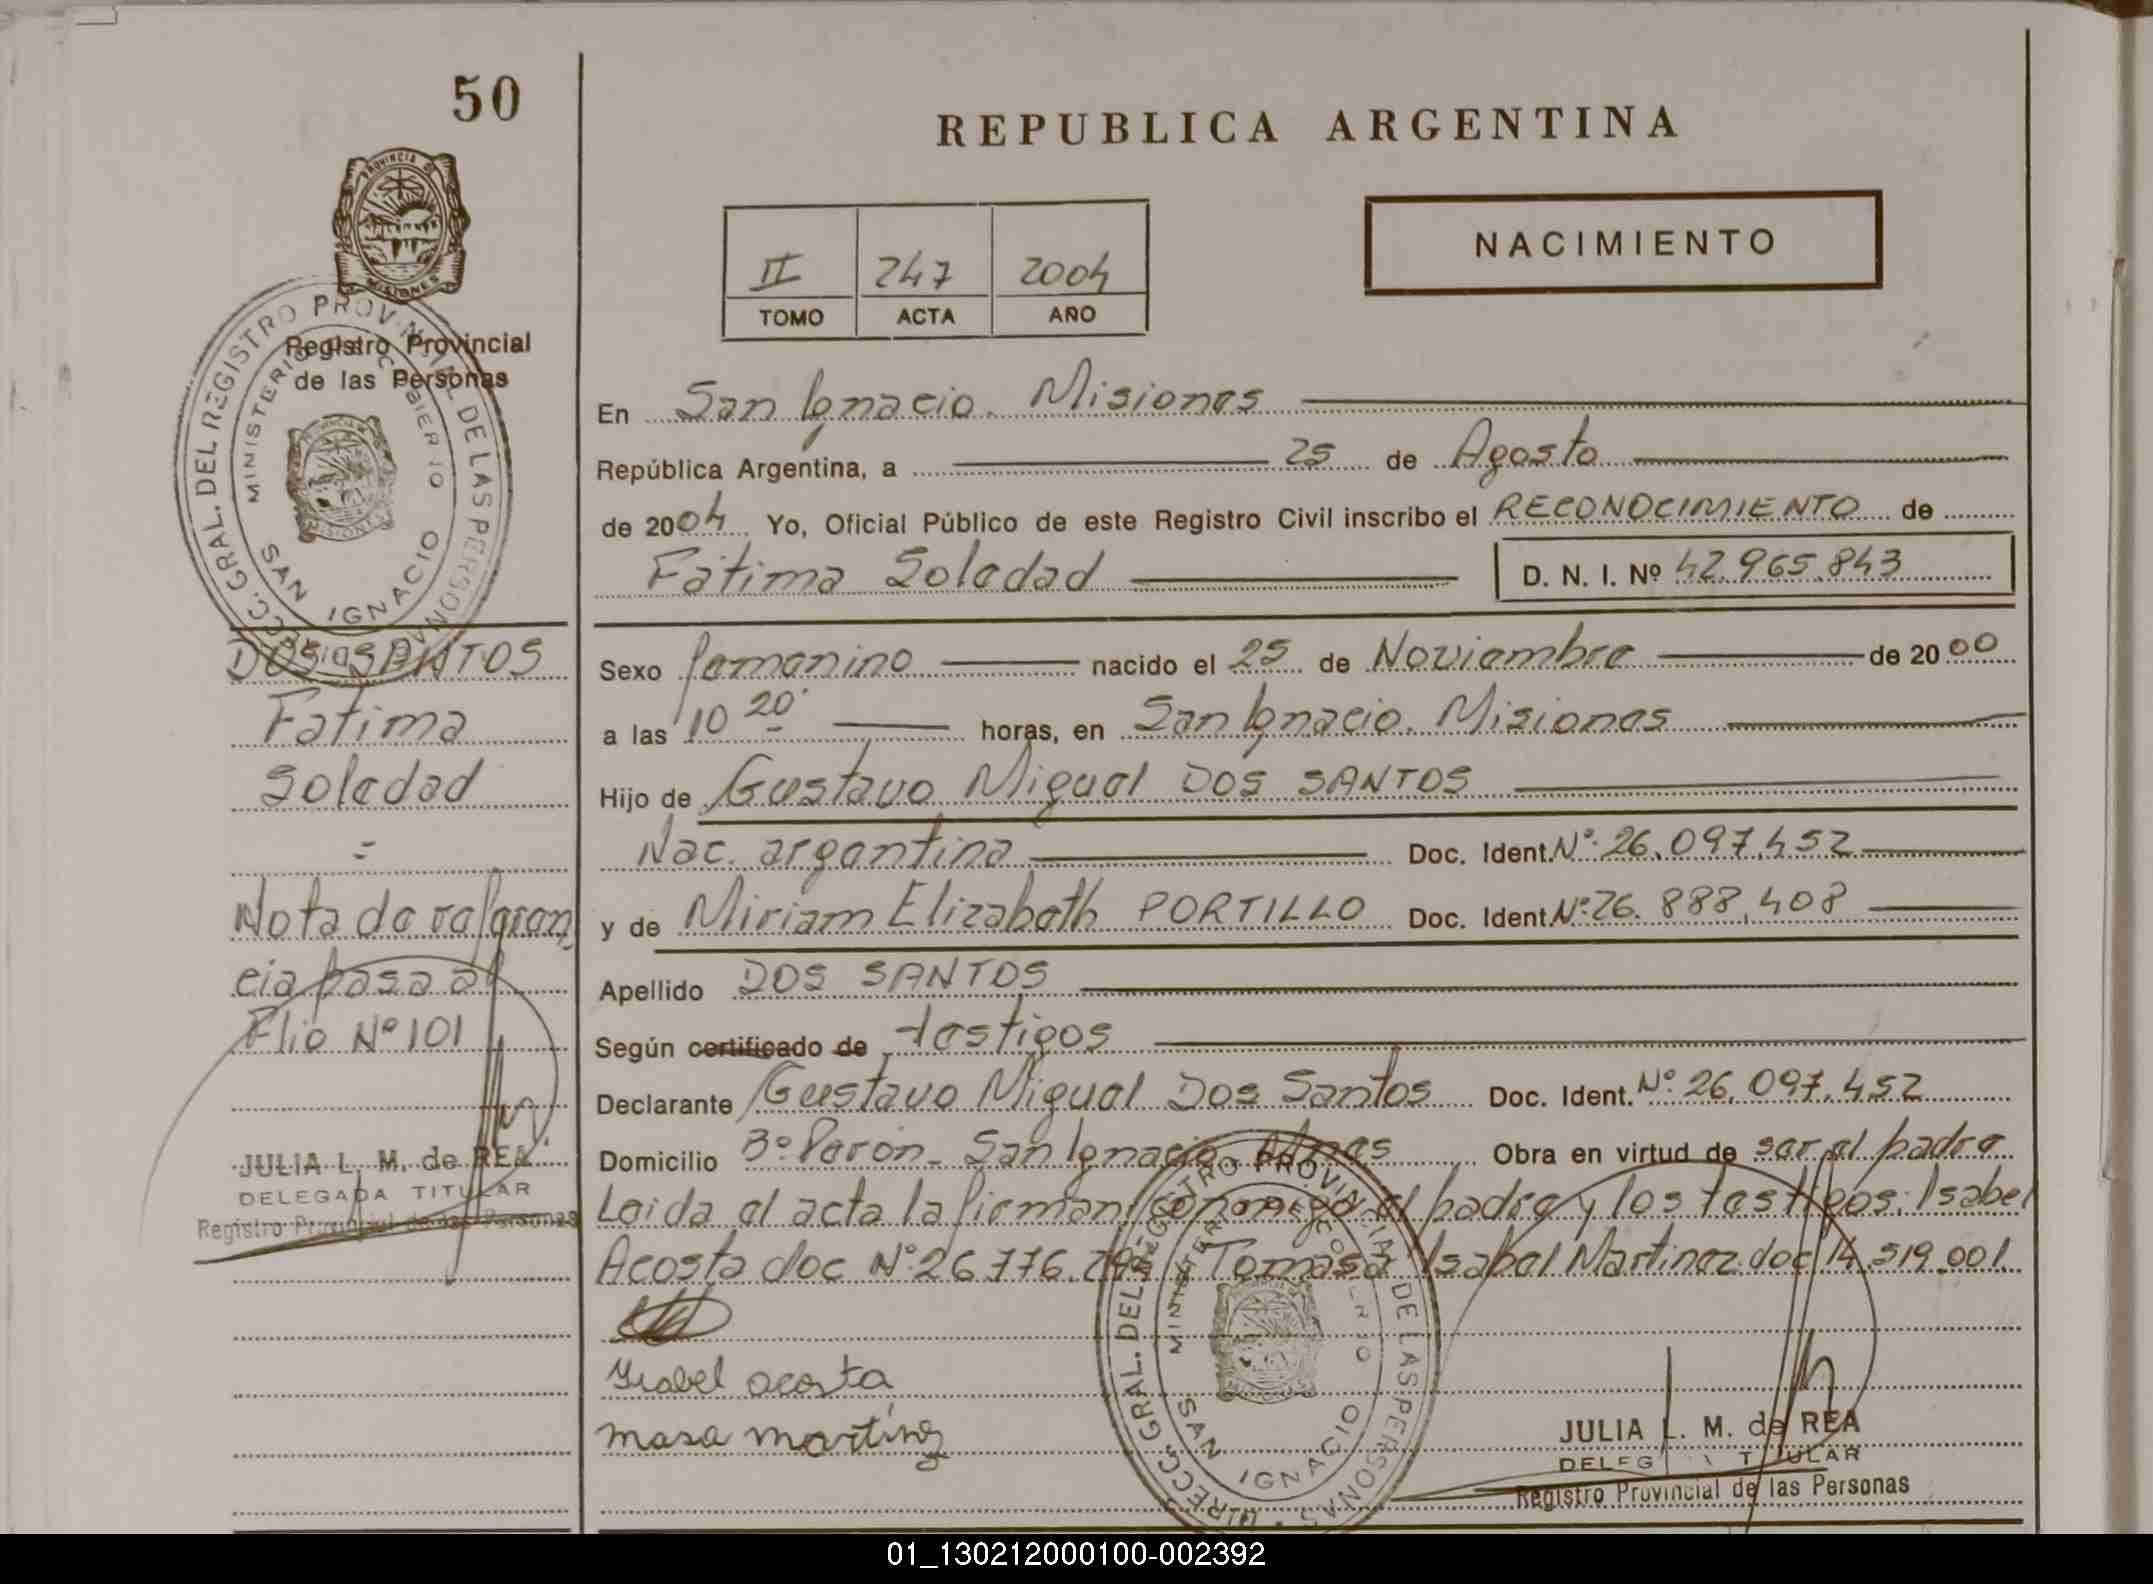 50
REPUBLICA ARGENTINA
PROVINCIA DE
MISIONES
NACIMIENTO
II 247 2004
TOMO ACTA AÑO
Registro Provincial
de las Personas
DIRECC. GRAL. DEL REGISTRO PROVINCIAL DE LAS PERSONAS
MINISTERIO DE GOBIERNO
SAN IGNACIO
En San Ignacio. Misiones
República Argentina, a 25 de Agosto
de 2004 Yo, Oficial Público de este Registro Civil inscribo el RECONOCIMIENTO de
Fátima Soledad D. N. I. Nº 42.965.843
DOS SANTOS
Fatima
Soledad
=
Nota de referen
cia pasa al
Flio Nº 101
JULIA L. M. de REA
DELEGADA TITULAR
Registro Provincial de las Personas
Sexo femenino nacido el 25 de Noviembre de 2000
a las 10 20' horas, en San Ignacio. Misiones
Hijo de Gustavo Miguel DOS SANTOS
Nac. argentina Doc. Ident. Nº: 26.097.452
y de Miriam Elizabeth PORTILLO Doc. Ident. Nº: 26.888.408
Apellido DOS SANTOS
Según certificado de testigos
Declarante Gustavo Miguel Dos Santos Doc. Ident. Nº: 26.097.452
Domicilio Bº Peron_ San Ignacio. Mnes Obra en virtud de ser el padre
Leida el acta la firman conmigo el padre y los testigos: Isabel
Acosta doc Nº: 26.776. Tomasa Isabel Martinez doc 14.519.001.
Isabel acosta
masa martinez
DIRECC. GRAL. DEL REGISTRO PROVINCIAL DE LAS PERSONAS
MINISTERIO DE GOBIERNO
SAN IGNACIO
JULIA L. M. de REA
DELEG TITULAR
Registro Provincial de las Personas
01_130212000100-002392